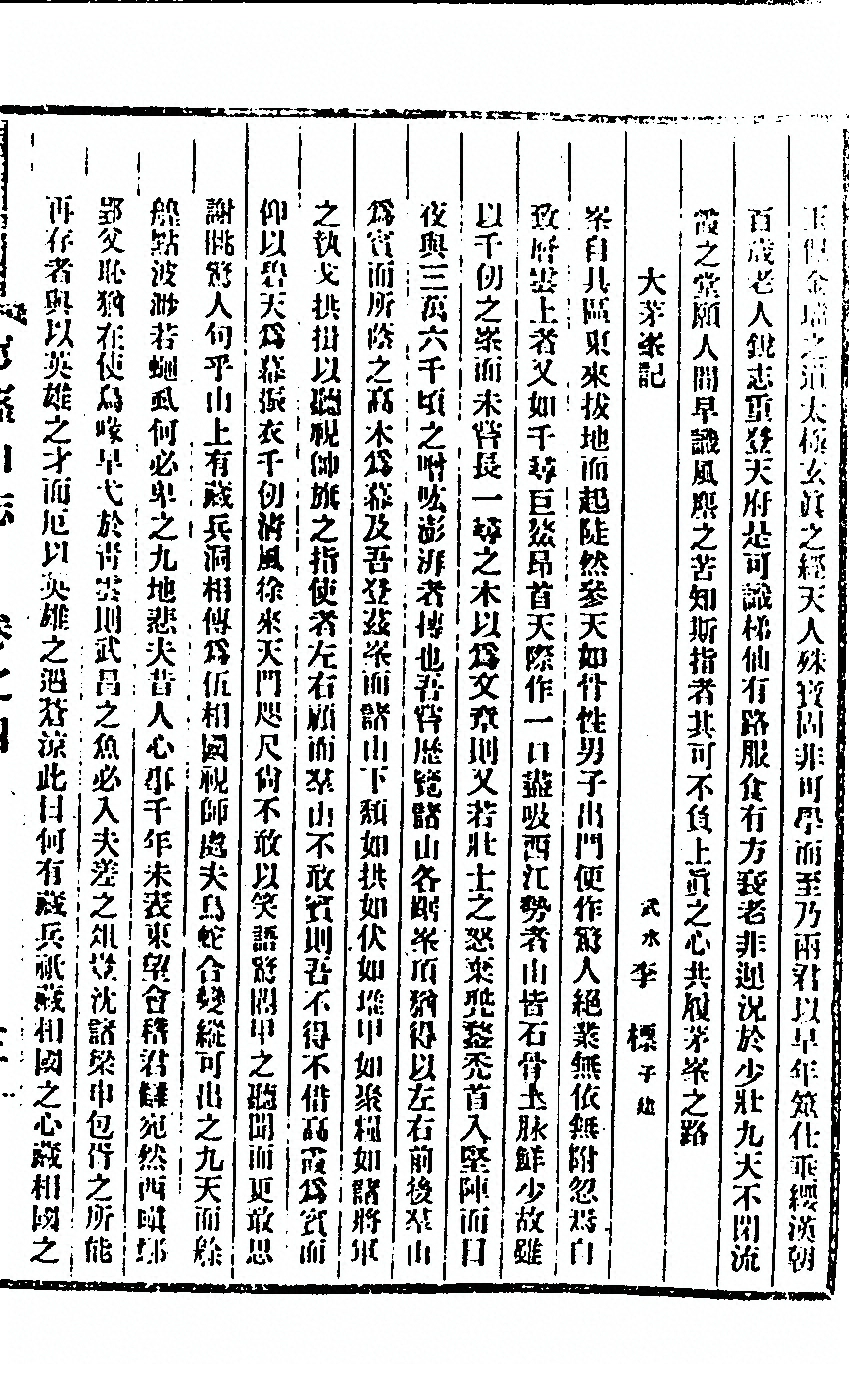 金璫之道太極玄眞之經天人殊寶固非可學而至乃兩君以早年筮仕乖纓漢朝
百歲老人銳志重登天府是可識梯仙有路服食有方衰老非迥況於少壯九天不閉流
霞之堂願人間早識風塵之苦知斯指者其可不負上眞之心共履茅峯之路
大茅峯記
武水李標子建
峯自具區東來拔地而起陡然參天如骨性男子出門便作驚人絕業無依無附忽焉自
致層雲上者又如千尋巨鰲昂首天際作一口盡吸西江勢者山皆石骨土脉鮮少故雖
以千仞之峯而未嘗長一尋之木以爲文章則又若壯士之怒棄兜鍪禿首入堅陣而日
夜與三萬六千頃之㗲呟澎湃者搏也吾嘗歷覽諸山各踞峯頂猶得以左右前後羣山
爲賓而所蔭之喬木爲幕及吾登茲峯而諸山下頹如拱如伏如堆甲如聚糧如諸將軍
之執戈拱揖以聽視帥旗之指使者左右顧而羣山不敢賓則吾不得不借高霞爲賓而
仰以碧天爲幕振衣千仞清風徐來天門咫尺尚不敢以笑語驚閶甲之聽聞而更敢思
謝朓驚人句乎山上有藏兵洞相傳爲伍相國視師處夫鳥蛇合變縱可出之九天而艅
艎點波渺若蠅虱何必卑之九地悲夫昔人心事千年未表東望會稽君讎宛然西瞋鄢
郢父恥猶在使鳥喙早弋於靑雲則武昌之魚必入夫差之俎豈沈諸梁申包胥之所能
再存者與以英雄之才而厄以英雄之遇蒼涼此日何有藏兵祇藏相國之心藏相國之